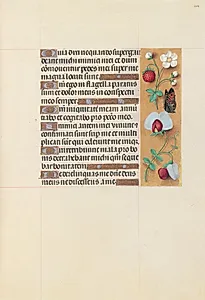 Quia dixi nequando supergau
deant michi inimici mei et dum
commoventur pedes mei super me
magna locuti sunt
Quoniam ego in flagella paratus
sum et dolor meus in conspectu
meo semper
Quoniam iniquitatem meam annun
tiabo et cogitabo pro peccato meo
Inimici autem mei vivunt et
confirmati sunt super me et multi
plicati sunt qui oderunt me inique
Qui retribuunt mala pro bo
nis detrahebant michi quoniam seque
bar bonitatem
Ne derelinquas me domine deus
meus ne discesseris a me